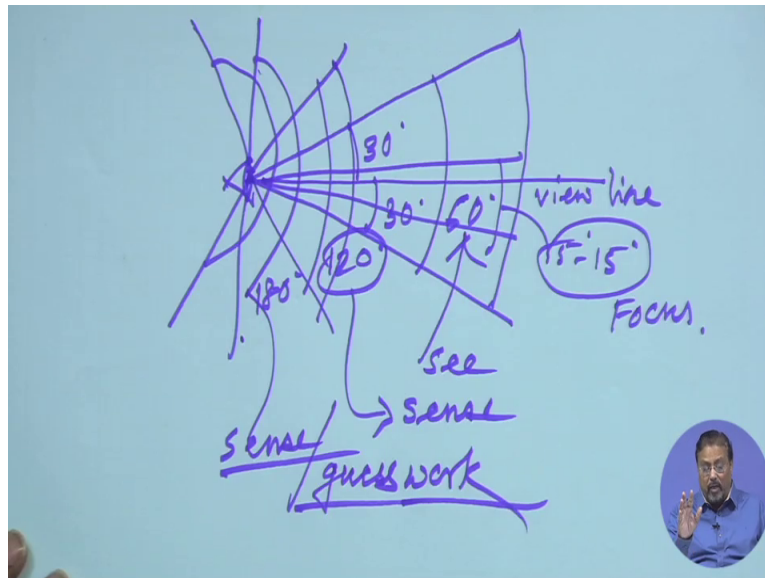 30°
view line
30°
60°
15°-15°
120°
180°
Focus.
see
sense
sense/
guess work